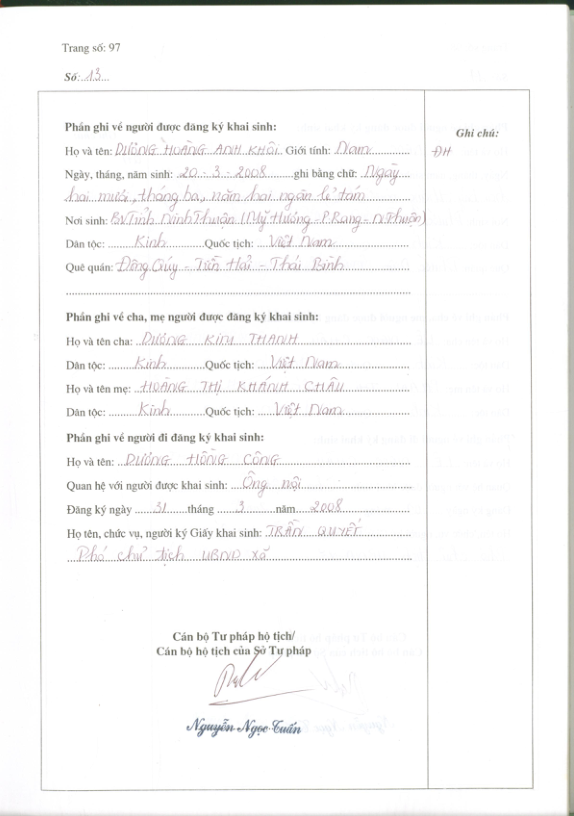 Trang số: 97
Số: 13
Phần ghi về người được đăng ký khai sinh:
Ghi chú:
Họ và tên: DƯƠNG HOÀNG ANH KHÔI Giới tính: Nam
ĐH
Ngày, tháng, năm sinh: 20 - 3 - 2008 ghi bằng chữ: Ngày
hai mươi, tháng ba, năm hai ngàn lẻ tám
Nơi sinh: BV Tỉnh Ninh Thuận (Mỹ Hương - P.Rang - N.Thuận)
Dân tộc: Kinh Quốc tịch: Việt Nam
Quê quán: Đông Qúy - Tiền Hải - Thái Bình
Phần ghi về cha, mẹ người được đăng ký khai sinh:
Họ và tên cha: DƯƠNG KIM THANH
Dân tộc: Kinh Quốc tịch: Việt Nam
Họ và tên mẹ: HOÀNG THỊ KHÁNH CHÂU
Dân tộc: Kinh Quốc tịch: Việt Nam
Phần ghi về người đi đăng ký khai sinh:
Họ và tên: DƯƠNG HỒNG CÔNG
Quan hệ với người được khai sinh: Ông nội
Đăng ký ngày 31 tháng 3 năm 2008
Họ tên, chức vụ, người ký Giấy khai sinh: TRẦN QUYẾT
Phó chủ tịch UBND xã
Cán bộ Tư pháp hộ tịch/
Cán bộ hộ tịch của Sở Tư pháp
Nguyễn Ngọc Tuấn